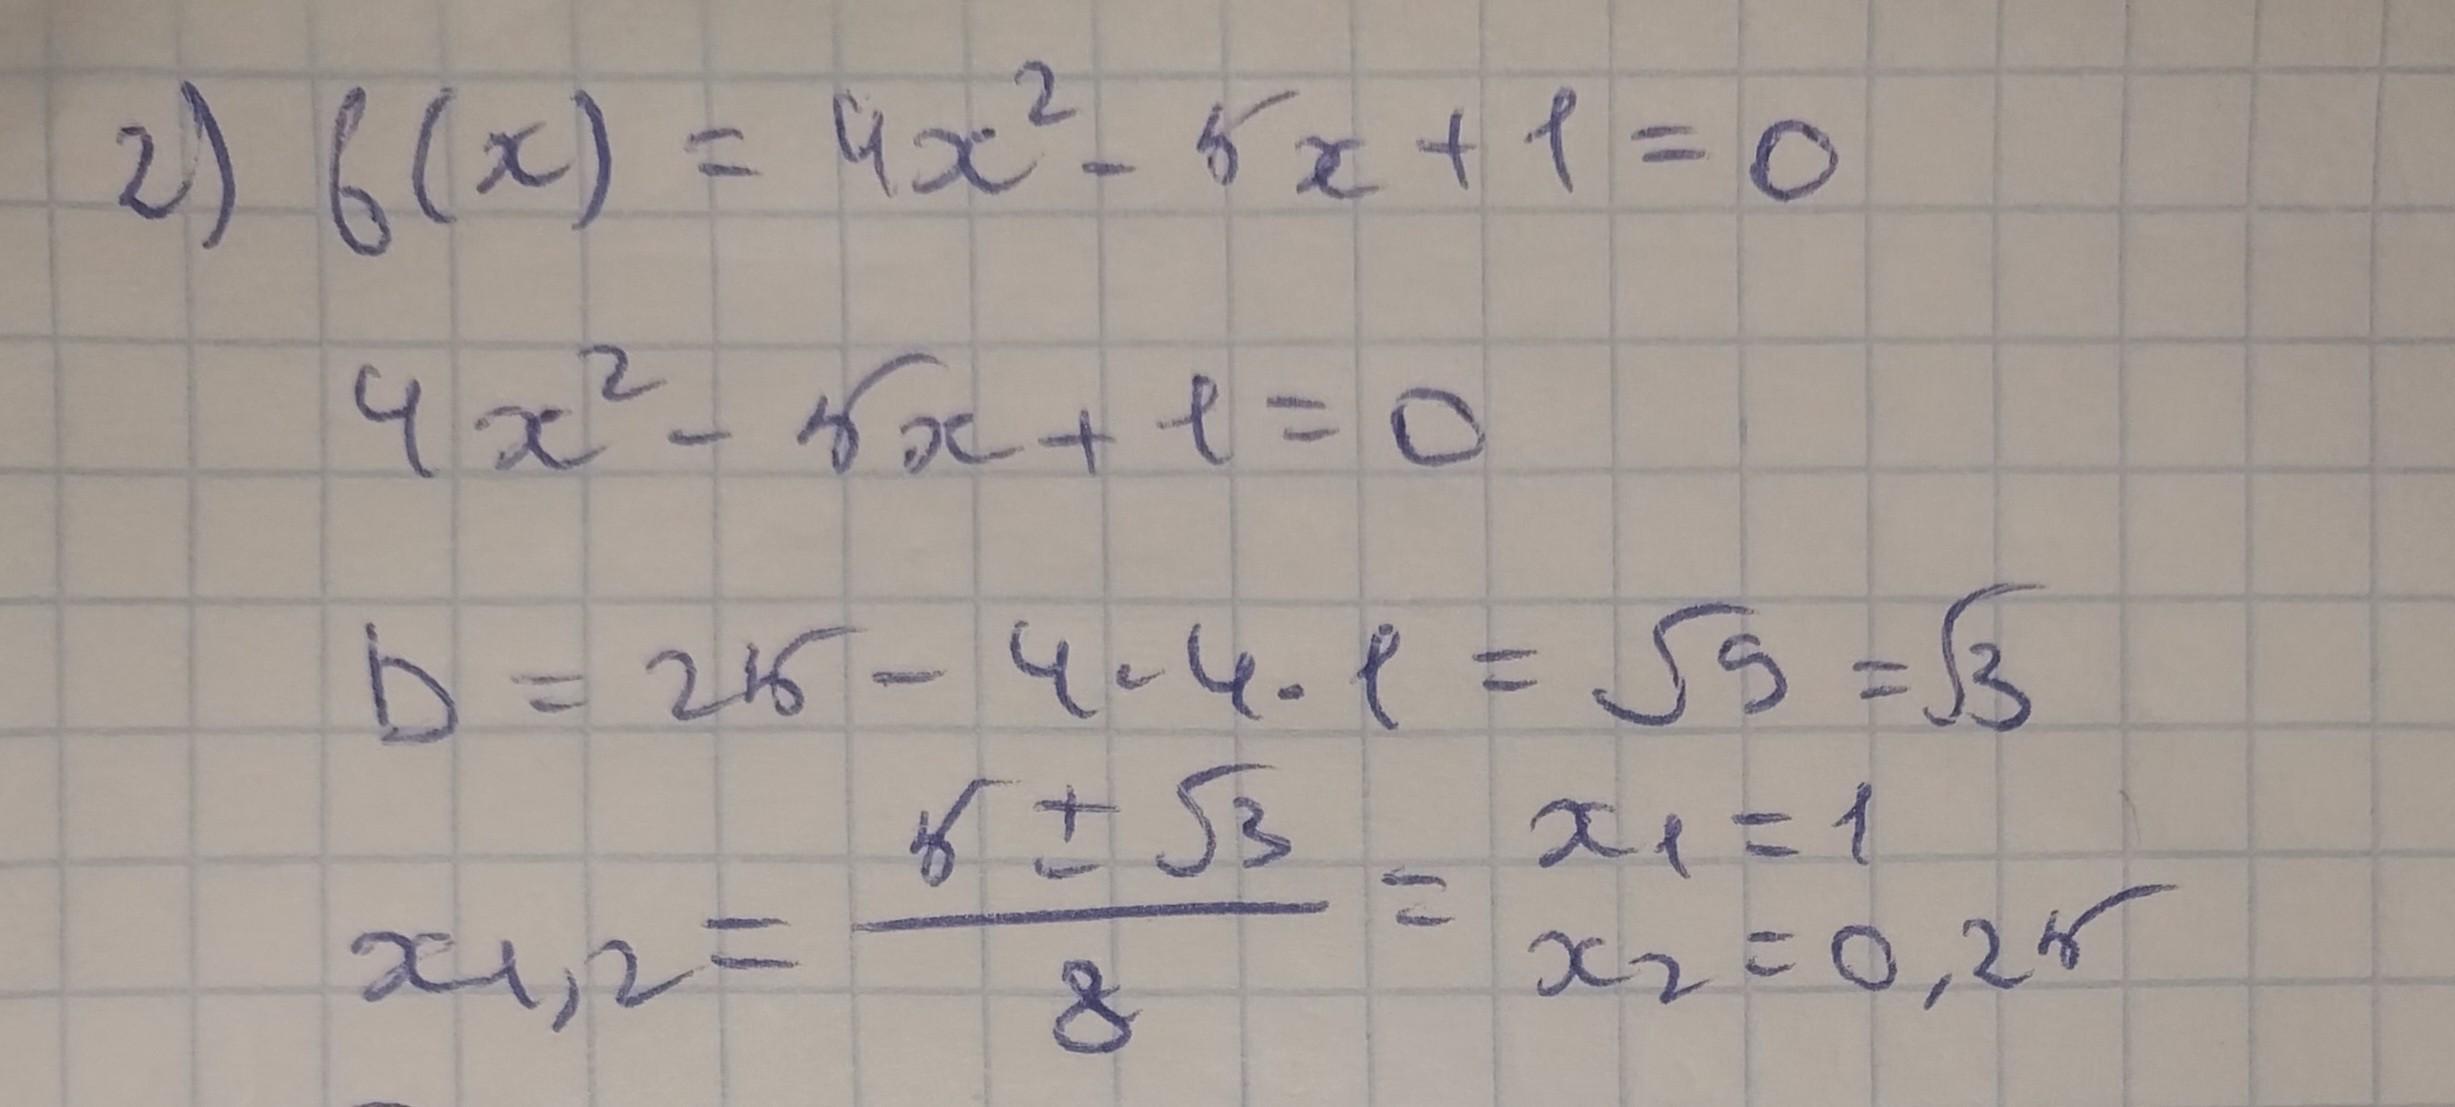 2) f(x) = 4x² - 5x + 1 = 0
4x² - 5x + 1 = 0
D = 25 - 4 · 4 · 1 = √9 = √3
x1,2 = (5 ± √3) / 8 = x1 = 1
x2 = 0,25